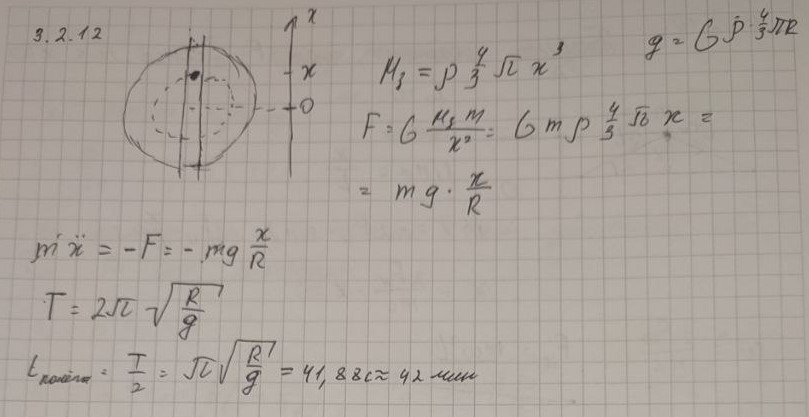 3.2.12
x
x
0
M₃ = ρ 4/3 π x³
g = G ρ · 4/3 πR
F = G M₃ m / x² = G m ρ 4/3 π x =
= mg · x/R
mẍ = -F = - mg x/R
T = 2π √(R/g)
t полёта = T/2 = π √(R/g) = 41,88c ≈ 42 мин